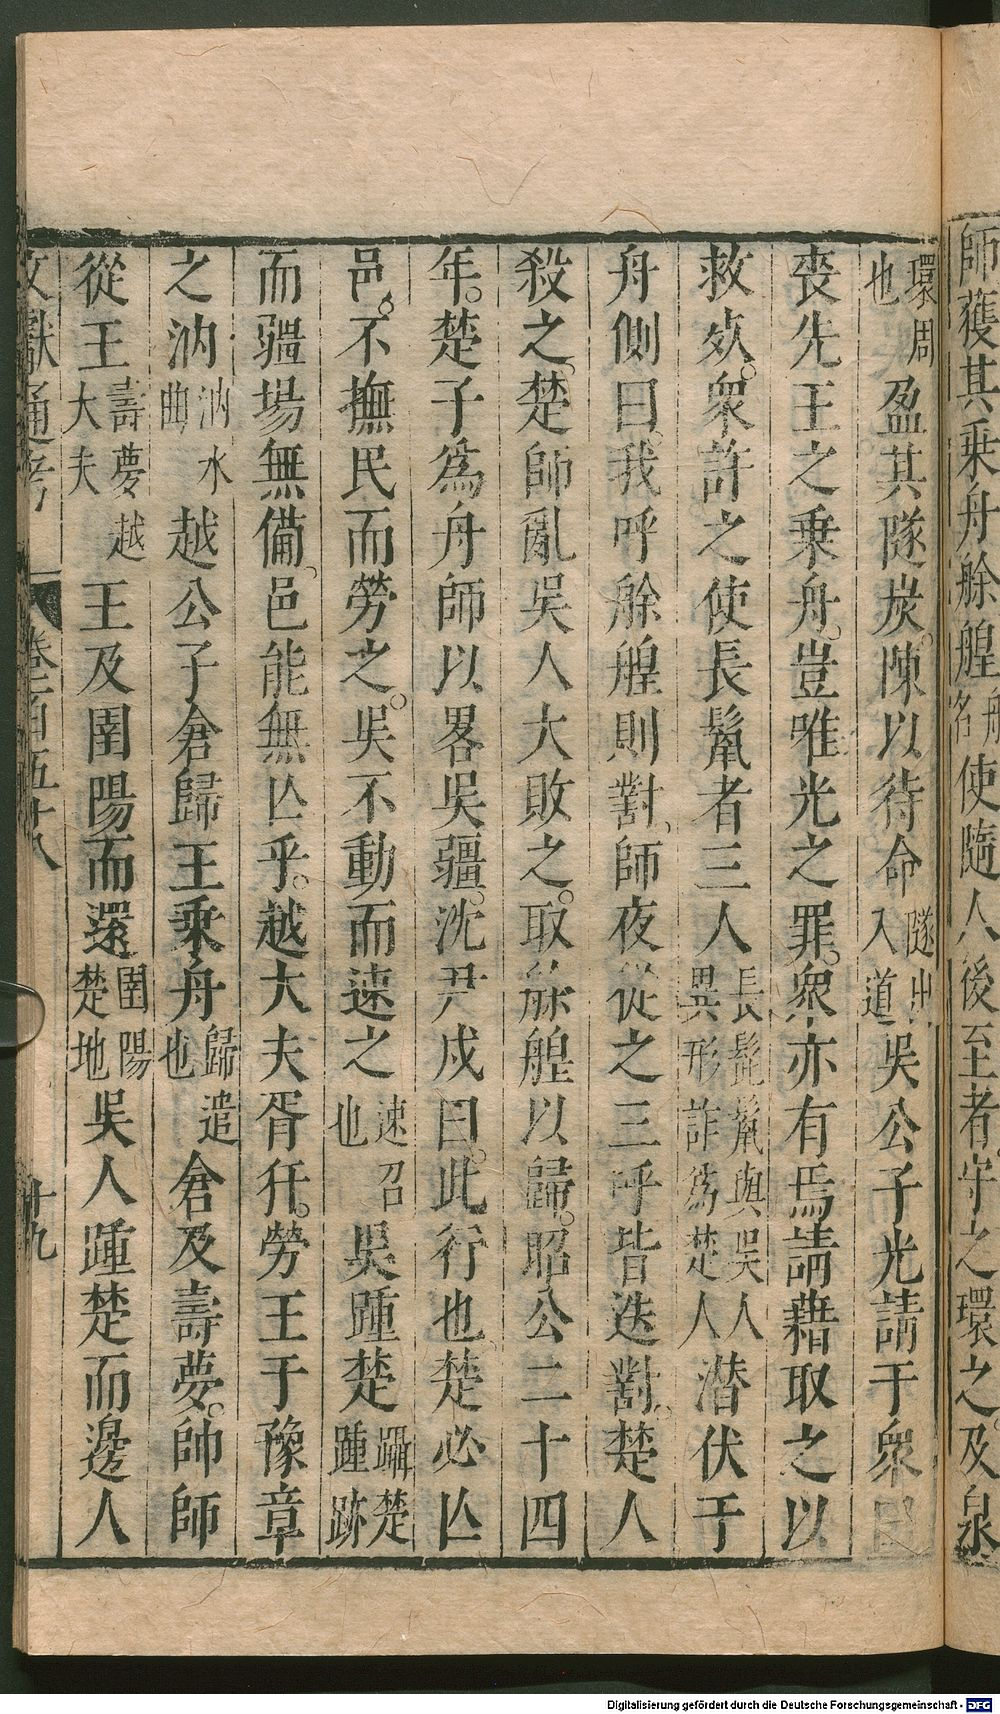 師獲其乗舟餘艎舟名使隨人後至者守之環之及泉
環周也盈其隧炭陳以待命隧出入道吳公子光請于衆曰
喪先王之乗舟豈唯光之罪衆亦有焉請藉取之以
救死衆許之使長鬣者三人長髭鬣與吳人異形詐為楚人潜伏于
舟側曰我呼餘艎則對師夜從之三呼皆迭對楚人
殺之楚師亂吳人大敗之取餘艎以歸昭公二十四
年楚子為舟師以畧吳疆沈尹戍曰此行也楚必亾
邑不撫民而勞之吳不動而速之速召也吳踵楚躡楚踵跡
而疆場無備邑能無亾乎越大夫胥犴勞王于豫章
之汭汭水曲越公子倉歸王乗舟歸遣也倉及壽夢帥師
從王壽夢越大夫王及圉陽而還圉陽楚地吳人踵楚而邊人
文獻通考 卷一百五十八 十九
Digitalisierung gefördert durch die Deutsche Forschungsgemeinschaft - DFG